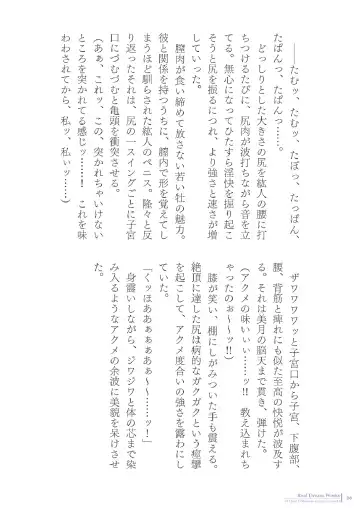 ――たむッ、たむッ、たぽっ、たっぱん、
たぱんっ、たぱんっ……。
どっしりとした大きさの尻を紘人の腰に打
ちつけるたびに、尻肉が波打ちながら音を立
てる。無心になってひたすら淫快を掘り起こ
そうと尻を振るにつれ、より強さと速さが増
していった。
膣肉が食い締めて放さない若い牡の魅力。
彼と関係を持つうちに、膣内で形を覚えてし
まうほど馴らされた紘人のペニス。隆々と反
り返ったそれは、尻の一スイングごとに子宮
口にづむづむと亀頭を衝突させる。
（あぁ、これッ、この、突かれちゃいけない
ところを突かれてる感じッ……！　これを味
わわされてから、私ッ、私ぃッ……）
ザワワワワッと子宮口から子宮、下腹部、
腰、背筋と痺れにも似た至高の快悦が波及す
る。それは美月の脳天まで貫き、弾けた。
（アクメの味いぃぃ……ッ!!　教え込まれち
ゃったのぉ〜〜ッ!!）
膝が笑い、棚にしがみついた手も震える。
絶頂に達した尻は病的なガクガクという痙攣
を起こして、アクメ度合いの強さを露わにし
ていた。
「くッほああぁぁぁあぁ〜〜……ッ！」
身震いしながら、ジワジワと体の芯まで染
み入るようなアクメの余波に美貌を呆けさせ
た。
Real Dream Works